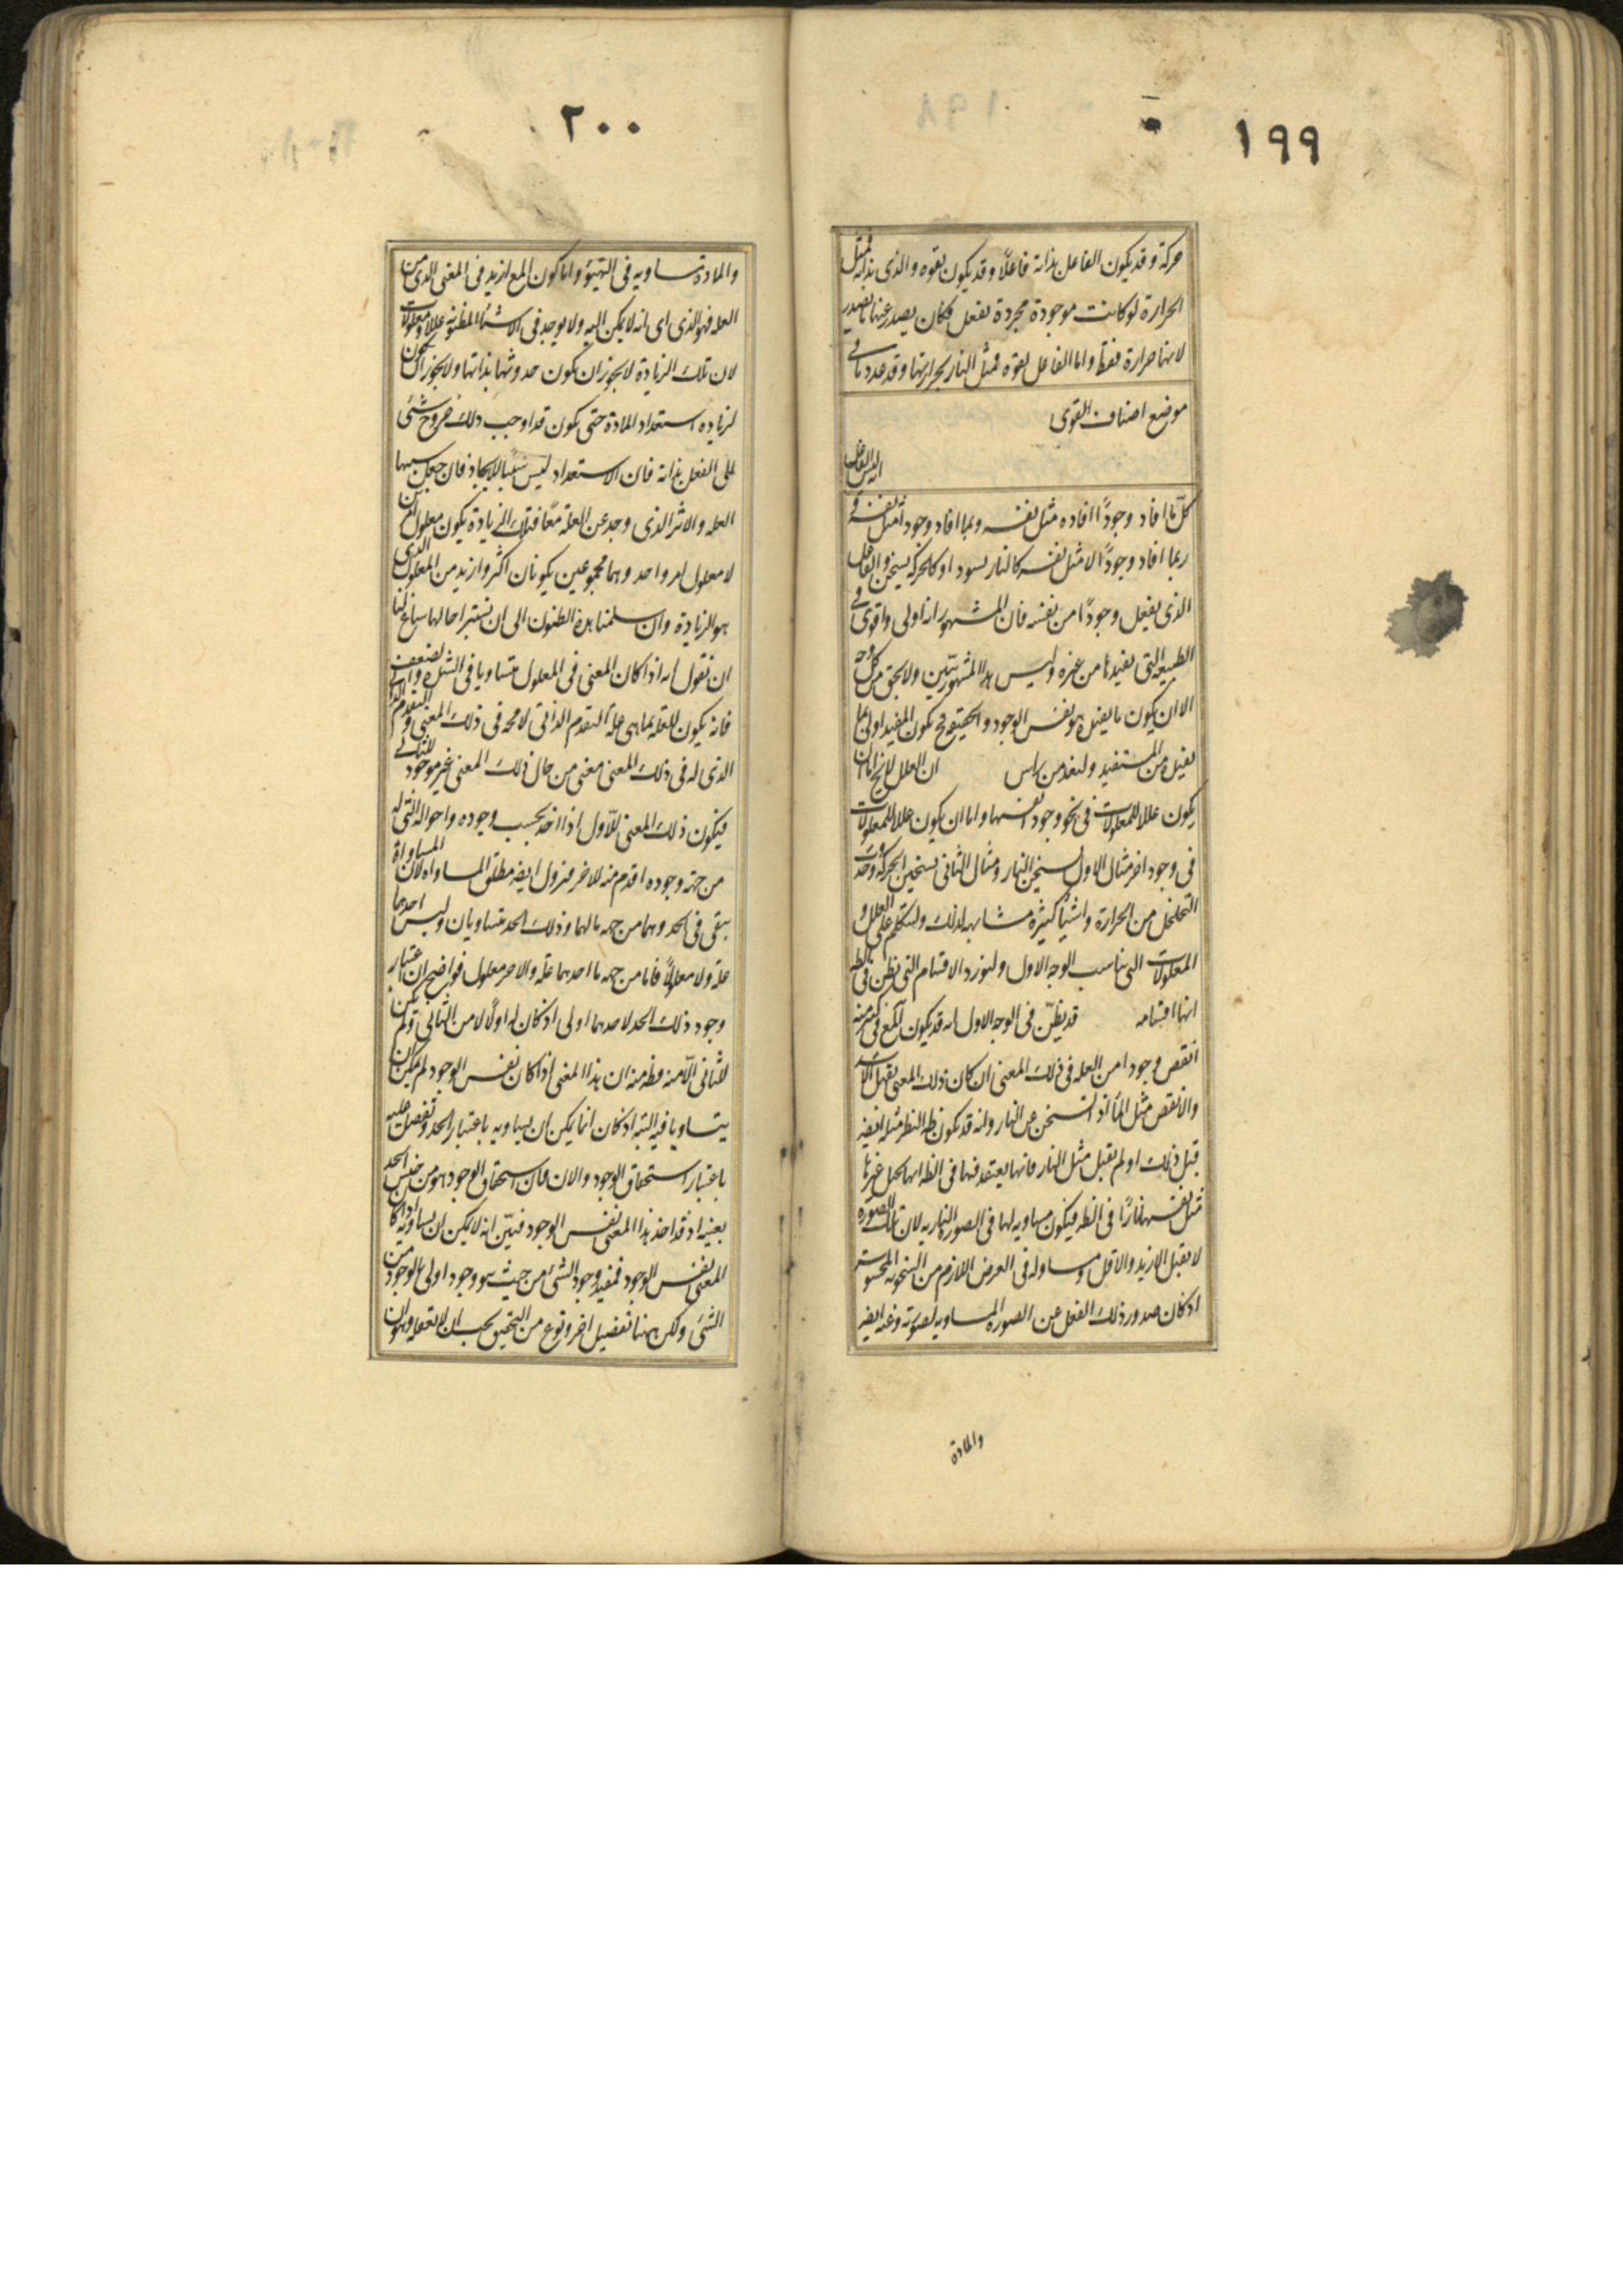 ١٩٩
حركة وقد يكون الفاعل بذاته فاعلا وقد يكون بقوه والذى بذاته فمثل
الحرارة لو كانت موجودة مجردة تفعل فكان يصدر عنها ما يصدر
لانها حرارة فقط واما الفاعل بقوه فمثل النار بحرارتها وقد عددنا فى
موضع اصناف القوى
كل ما افاد وجودًا افاده مثل نفسه وربما افاد وجودا مثل نفسه و
ربما افاد وجودًا لا مثل نفسه كالنار يسود او كالحركه يسخن والفاعل
الذى يفعل وجودًا من نفسه فان المشهور انه اولى واقوى فى
الطبيعه التى يفيدها من غيره وليس هذا المشهور ببيّن ولا بحق من كل وجه
الا ان يكون ما يفيده هو نفس الوجود والحقيقه فح يكون المفيد اولى بما
يفيده من المستفيد ولنعد من راس ان العلل لا يخ اما ان
يكون عللا للمعلولات فى نحو وجود انفسها واما ان يكون عللا للمعلولات
فى وجود اخر مثال الاول تسخين النار ومثال الثانى تسخين الحركة وحدوث
التخلخل من الحرارة واشياء كثيره مشابهه لذلك ولنتكلم على العلل و
المعلولات التى يناسب الوجه الاول ولنورد الاقسام التى يظن فى الظه
انها اقسامه قد يظنّ فى الوجه الاول انه قد يكون المع فى كثير منه
انقص وجودا من العله فى ذلك المعنى ان كان ذلك المعنى يقبل الاشد
والانقص مثل الماء اذا تسخن عن النار وانه قد يكون فى ظه النظر مثله ايضه
قبل ذلك او لم يقبل مثل النار فانها يعتقد فيها فى الظه انها تحيل غيرها
مثل نفسها نارًا فى الظه فيكون مساويه لها فى الصوره الناريه لان تلك الصوره
لا يقبل الازيد والاقل ومساو له فى العرض اللازم من السخونه المحسوسه
اذ كان صدور ذلك الفعل عن الصوره المساويه لصورته وعنه ايضه
والمادة
٢٠٠
والمادة تساويه فى التهيؤ واما كون المع ازيد فى المعنى الذى من
العله فهو الذى اى انه لا يمكن اليه ولا يوجد فى الاشياء المظنونه عللا ومعلولات
لان تلك الزيادة لا يجوز ان يكون حدوثها بذاتها ولا يجوز ان يكون
لزياده استعداد المادة حتى يكون قد اوجب ذلك خروج شئى
الى الفعل بذاته فان الاستعداد ليس سببا للايجاد فان جعل سببها
العله والاثر الذى وجد عن العلة معًا فتلك الزيادة يكون معلول امرين
لا معلول امر واحد وهما مجموعين يكونان اكثر وازيد من المعلول الذى
هو الزيادة وان سلمنا هذه الظنون الى ان نستبرا حالها ساغ لنا
ان نقول انه اذا كان المعنى فى المعلول متساويا فى الشدة والضعف
فانه يكون للعله بما هى عله التقدم الذاتى لا محه فى ذلك المعنى والتقدم الذاتى
الذى له فى ذلك المعنى معنى من حال ذلك المعنى غير موجود للثانى
فيكون ذلك المعنى للاول اذا اخذ بحسب وجوده واحواله التى له
من جهة وجوده اقدم منه للاخر فيزول ايضه مطلق المساواه لان المساواة
يبقى فى الحد وهما من جهه ما لهما ذلك الحد متساويان وليس احدهما
عله ولا معلولاً فاما من جهه ما احدهما علة والاخر معلول فواضح ان اعتبار
وجود ذلك الحد لاحدهما اولى اذ كان له اولا لا من الثانى ولم يكن
للثانى الا منه فظه منه ان هذا المعنى اذا كان نفس الوجود لم يمكن ان
يتساويا فيه البته اذ كان انما يمكن ان يساويه باعتبار الحد وتفضل عليه
باعتبار استحقاق الوجود والان فان استحقاق الوجود هو من جنس الحد
بعينه اذ قد اخذ هذا المعنى نفس الوجود فبيّن انه لا يمكن ان يساويه اذا كان
المعنى نفس الوجود فمفيد وجود الشئ من حيث هو وجود اولى بالوجود من
الشئ ولكن ههنا تفصيل اخر ونوع من التحقيق يجب ان لا نغفله وهو ان